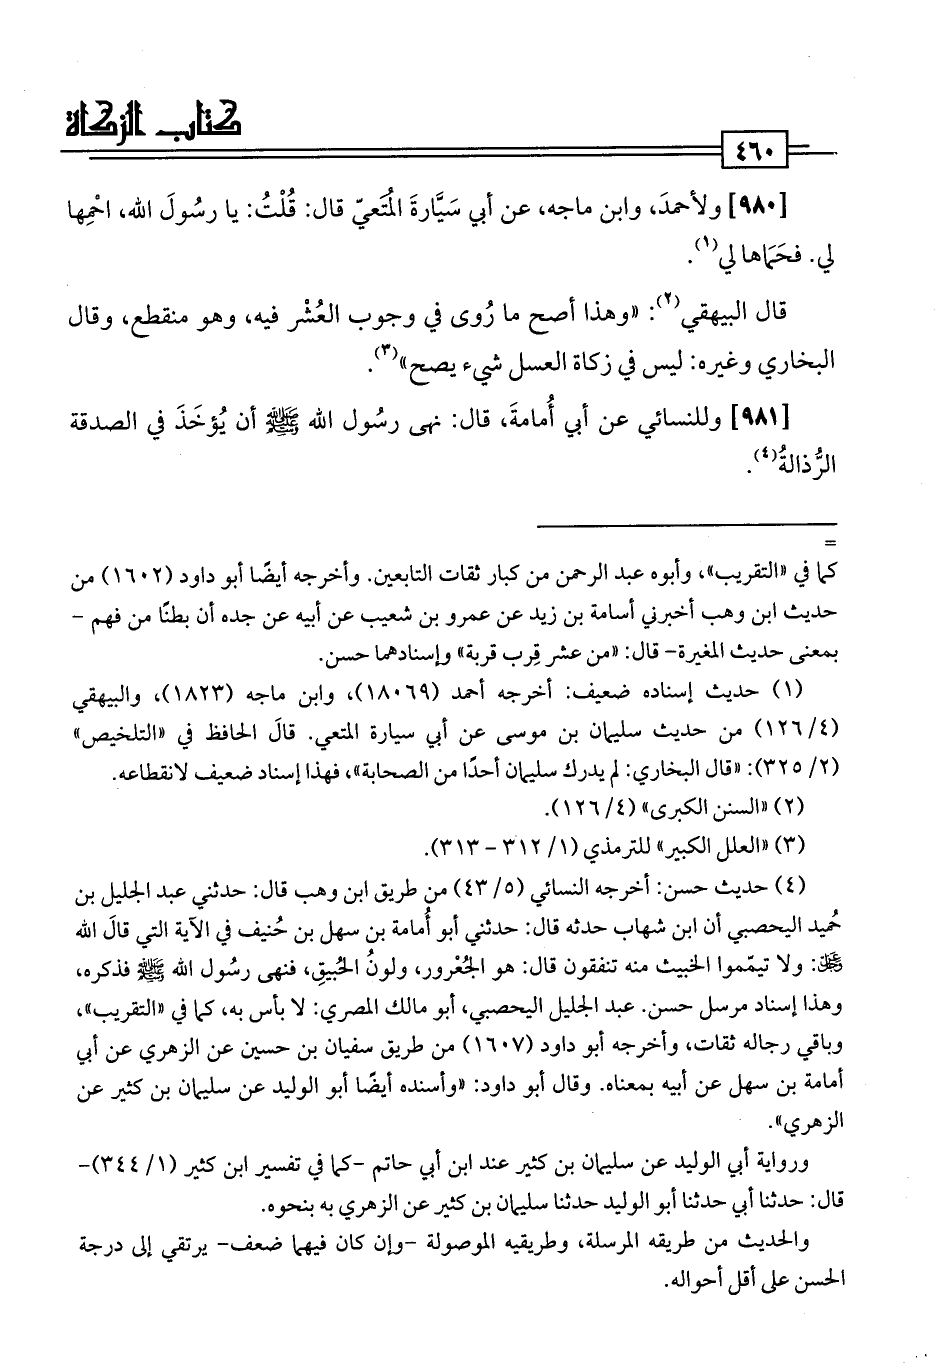 كتاب الزكاة
٤٦٠
[٩٨٠] ولأحمدَ، وابن ماجه، عن أبي سَيَّارةَ المُتَعيّ قال: قُلْتُ: يا رسُولَ الله، احْمِها
لي. فحَمَاها لي(١).
قال البيهقي(٢): «وهذا أصح ما رُوى في وجوب العُشْر فيه، وهو منقطع، وقال
البخاري وغيره: ليس في زكاة العسل شيء يصح»(٣).
[٩٨١] وللنسائي عن أبي أُمامةَ، قال: نهى رسُول الله ﷺ أن يُؤخَذَ في الصدقة
الرُّذالةُ(٤).
=
كما في «التقريب»، وأبوه عبد الرحمن من كبار ثقات التابعين. وأخرجه أيضًا أبو داود (١٦٠٢) من
حديث ابن وهب أخبرني أسامة بن زيد عن عمرو بن شعيب عن أبيه عن جده أن بطنًا من فهم -
بمعنى حديث المغيرة- قال: «من عشر قِرب قربة» وإسنادهما حسن.
(١) حديث إسناده ضعيف: أخرجه أحمد (١٨٠٦٩)، وابن ماجه (١٨٢٣)، والبيهقي
(٤/ ١٢٦) من حديث سليمان بن موسى عن أبي سيارة المتعي. قالَ الحافظ في «التلخيص»
(٢/ ٣٢٥): «قال البخاري: لم يدرك سليمان أحدًا من الصحابة»، فهذا إسناد ضعيف لانقطاعه.
(٢) «السنن الكبرى» (٤/ ١٢٦).
(٣) «العلل الكبير» للترمذي (١/ ٣١٢ - ٣١٣).
(٤) حديث حسن: أخرجه النسائي (٥/ ٤٣) من طريق ابن وهب قال: حدثني عبد الجليل بن
حُميد اليحصبي أن ابن شهاب حدثه قال: حدثني أبو أُمامة بن سهل بن حُنيف في الآية التي قالَ الله
ﷻ: ولا تيمّموا الخبيث منه تنفقون قال: هو الجُعْرور، ولونُ الحُبيقِ، فنهى رسُول الله ﷺ فذكره،
وهذا إسناد مرسل حسن. عبد الجليل اليحصبي، أبو مالك المصري: لا بأس به، كما في «التقريب»،
وباقي رجاله ثقات، وأخرجه أبو داود (١٦٠٧) من طريق سفيان بن حسين عن الزهري عن أبي
أمامة بن سهل عن أبيه بمعناه. وقال أبو داود: «وأسنده أيضًا أبو الوليد عن سليمان بن كثير عن
الزهري».
ورواية أبي الوليد عن سليمان بن كثير عند ابن أبي حاتم -كما في تفسير ابن كثير (١/ ٣٤٤)-
قال: حدثنا أبي حدثنا أبو الوليد حدثنا سليمان بن كثير عن الزهري به بنحوه.
والحديث من طريقه المرسلة، وطريقيه الموصولة -وإن كان فيهما ضعف- يرتقي إلى درجة
الحسن على أقل أحواله.